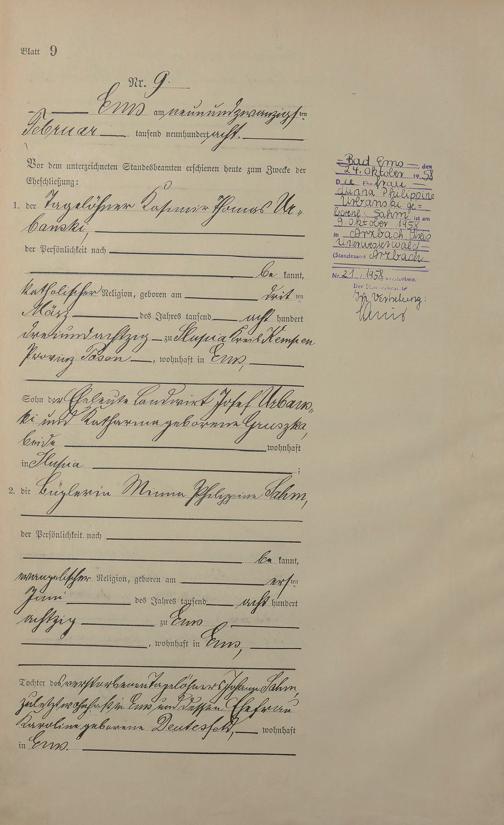 Blatt 9
Nr. 9.
Ems am neunundzwanzigsten
Februar tausend neunhundert acht.
Vor dem unterzeichneten Standesbeamten erschienen heute zum Zwecke der
Eheschließung:
1. der Tagelöhner Kasimir Thomas Ur-
banski,
der Persönlichkeit nach
be kannt,
katholischer Religion, geboren am dritten
März des Jahres tausend acht hundert
dreiundachtzig zu Slupia Kreis Kempen
Provinz Posen, wohnhaft in Ems,
Sohn der Eheleute Landwirt Josef Urbans-
ki und Katharina geborene Gruszka,
beide wohnhaft
in Slupia ;
2. die Büglerin Minna Philippine Sahm,
der Persönlichkeit nach
be kannt,
evangelischer Religion, geboren am ersten
Juni des Jahres tausend acht hundert
achtzig zu Ems
, wohnhaft in Ems,
Tochter des verstorbenen Tagelöhners Sahm,
zuletzt wohnhaft in Ems, und dessen Ehefrau
Karoline geborene wohnhaft
in Ems.
Bad Ems den
24. Oktober 1958
Die Ehefrau
Philippine
Urbanski ge-
borene Sahm ist am
9. Oktober 1958
in Arzbach Kreis
Unterwesterwald
(Standesamt Arzbach
Nr. 21/1958 verstorben.
Der Standesbeamte
In Vertretung: